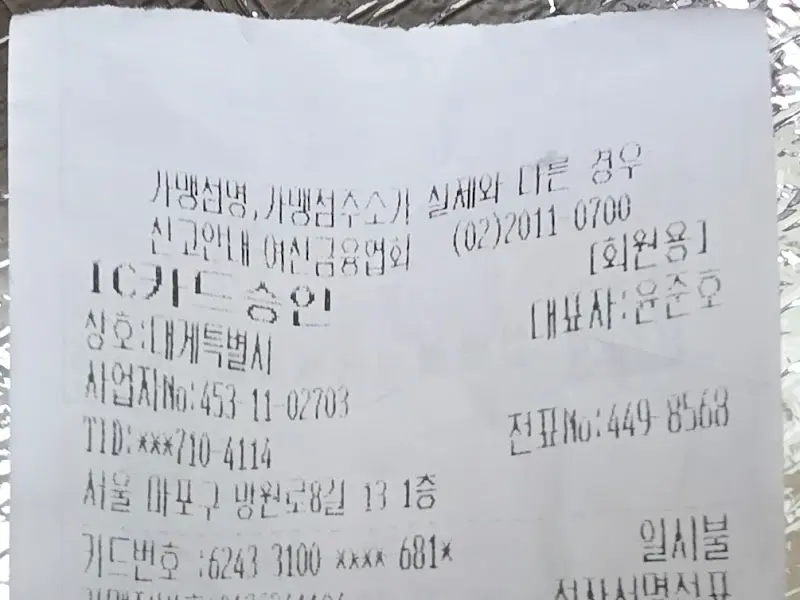 가맹점명,가맹점주소가 실제와 다른 경우
신고안내 여신금융협회 (02)2011-0700
IC카드승인 [회원용]
상호:대게특별시 대표자:윤준호
사업자No:453-11-02703
TID:***710-4114 전표No:449-8568
서울 마포구 방원로8길 13 1층
카드번호 :6243 3100 **** 681* 일시불
전자서명전표